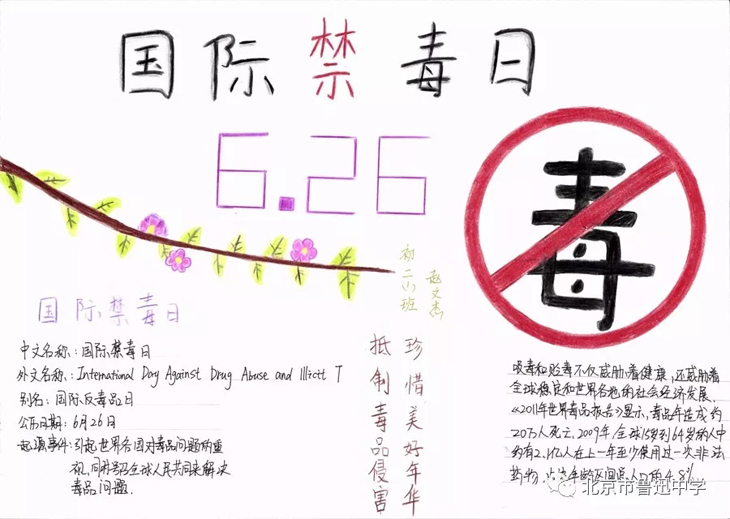 国际禁毒日
6.26
毒
初二(1)班
赵文杰
国际禁毒日
中文名称:国际禁毒日
外文名称:International Day Against Drug Abuse and Illictt T
别名:国际反毒品日
公历日期:6月26日
起源事件:引起世界各国对毒品问题的重
视,同时号召全球人民共同来解决
毒品问题.
珍惜美好年华
抵制毒品侵害
吸毒和贩毒不仅威胁着健康,还威胁着
全球稳定和世界各地的社会经济发展.
《2011年世界毒品报告》显示,毒品年造成约
20万人死亡,2009年,全球15岁到64岁的人中
约有2.1亿人在上一年至少使用过一次非法
药物,占当年龄区间总人口的4.8%
北京市鲁迅中学